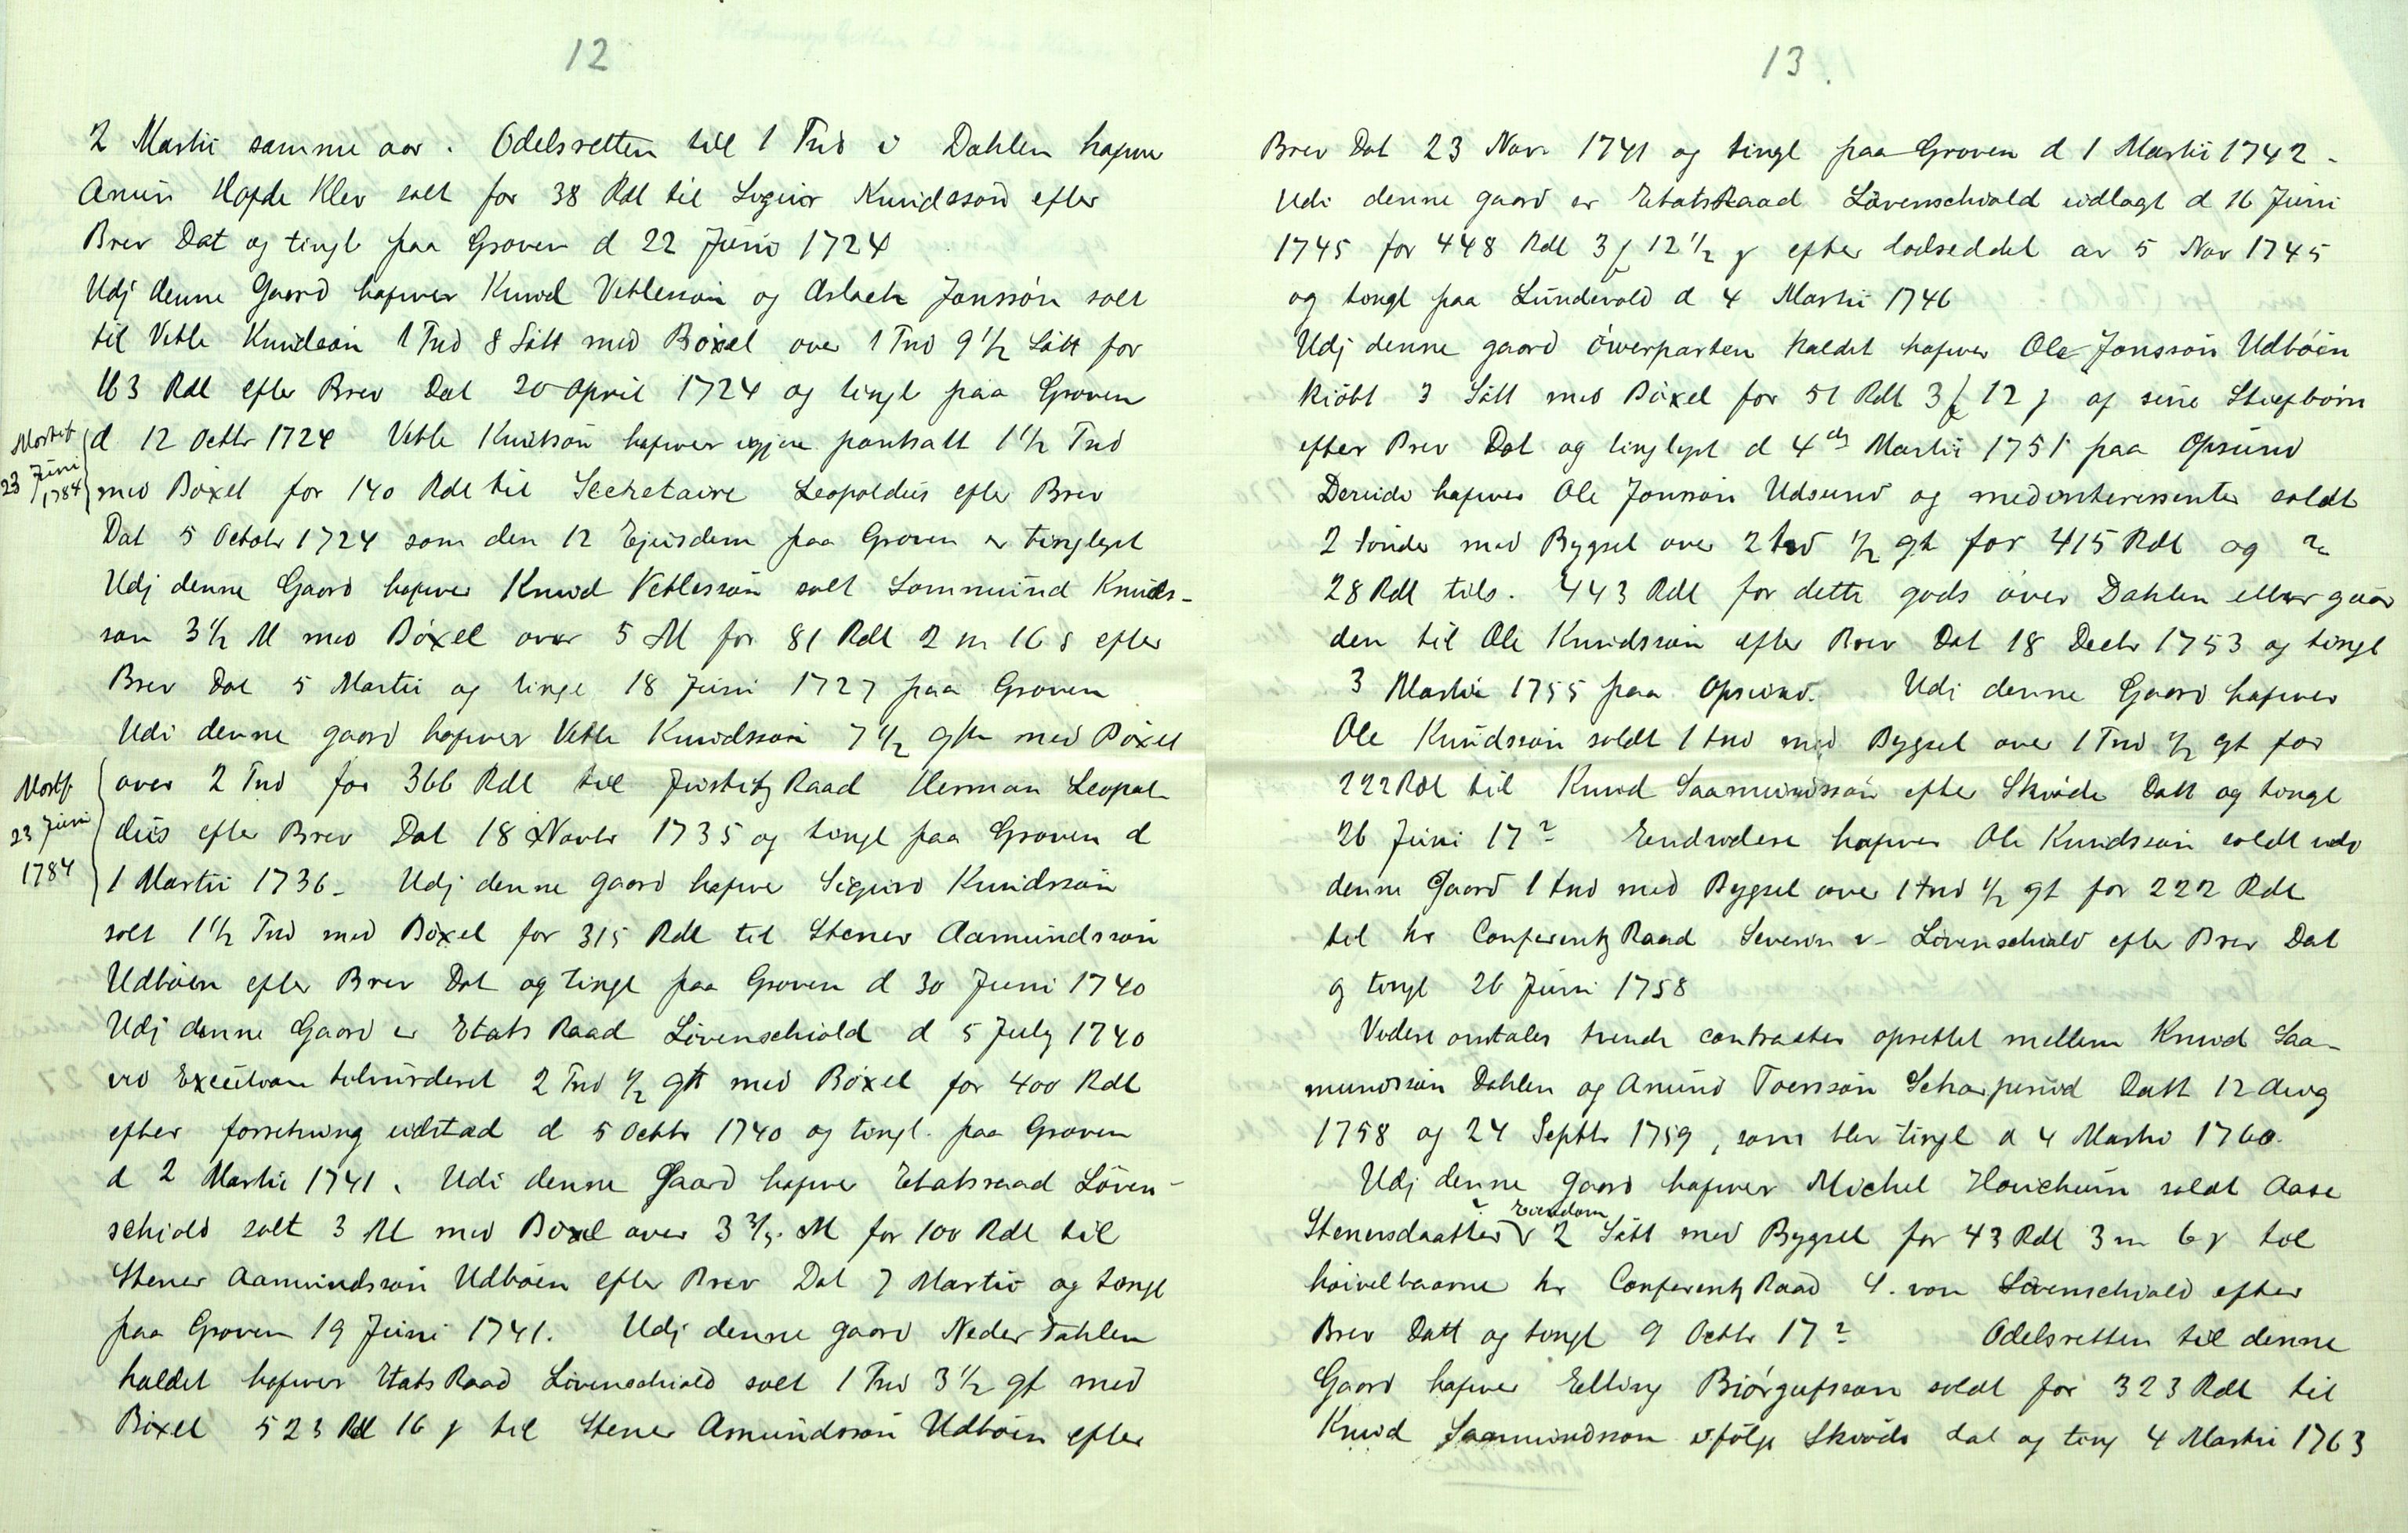 12
2 Martii samme aar. Odelsretten til 1 Tnd i Dahlen hafver
Anun Hofde Klev solt for 38 Rdl til Sigur Knudssøn efter
Brev Dat og tingl paa Groven d 22 Juni 1724
Udj denne Gaard hafwer Knud Vetlessøn og Aslach Jonssøn solt
til Vetle Knudsøn 1 Tnd 8 Sått med Bøxel over 1 Tnd 9 1/2 Sått for
163 Rdl efter Brev Dat 20 April 1724 og tingl paa Groven
d 12 Octbr 1724 Vetle Knutsøn hafwer igjen pantsatt 1 1/2 Tnd
med Bøxel for 140 Rdl til Secretaire Leopoldus efter Brev
Dat 5 Octobr 1724 som den 12 Ejusdem paa Groven er tinglyst
Udj denne Gaard hafwer Knud Vetlessøn solt Sommund Knuds-
søn 3 1/2 M med Bøxel over 5 M for 81 Rdl 2 m 16 s efter
Brev Dat 5 Martii og tingl 18 Juni 1727 paa Groven
Udi denne gaard hafwer Vetle Knudssøn 7 1/2 gth med Bøxel
over 2 Tnd for 366 Rdl til Justitz Raad Herman Leopol-
dus efter Brev Dat 18 Novbr 1735 og tingl paa Groven d
1 Martii 1736. Udj denne gaard hafwe Sigurd Knudssøn
solt 1 1/2 Tnd med Bøxel for 315 Rdl til Stener Aamundssøn
Udbøen efter Brev Dat og tingl paa Groven d 30 Juni 1740
Udj denne Gaard er Etats Raad Lövenschiold d 5 July 1740
ved Execution tilvurderet 2 Tnd 1/2 gth med Bøxel for 400 Rdl
efter forretning udstæd d 5 Octbr 1740 og tingl. paa Groven
d 2 Martii 1741. Udi denne Gaard hafwer Etatsraad Löven-
schiold solt 3 M med Bøxel over 3 M for 100 Rdl til
Stener Aamundssøn Udbøen efter Brev Dat 7 Martii og tingl
paa Groven 19 Juni 1741. Udj denne gaard Neder Dahlen
kaldet hafwer Etats Raad Lövenschiold solt 1 Tnd 3 1/2 gt med
Bøxel 523 Rdl 16 s til Stener Amundssøn Udbøen efter
Mortif
23 Juni
1784
Mortf
23 Juni
1784
13.
Brev Dat 23 Nov 1741 og tingl paa Groven d 1 Martii 1742.
Udi denne gaard er EtatsRaad Lövenschiold udlagt d 16 Juni
1745 for 448 Rdl 3 12 1/2 s efter lodseddel av 5 Nov 1745
og tingl paa Lundevold d 4 Martii 1746
Udj denne gaard øwerparten kaldet hafwer Ole Jonssøn Udbøen
kiøbt 3 Sått med Bøxel for 51 Rdl 3 12 s af sine Stiefbørn
efter Brev Dat og tinglyst d 4de Martii 1751 paa Opsund
Derudi hafwer Ole Jonssøn Udsund og medinteressenter soldt
2 tønder med Bygsel over 2 tnd 1/2 gt for 415 Rdl og
28 Rdl tils. 443 Rdl for dette gods øver Dahlen eller gaar
den til Ole Knudssøn efter Brev Dat 18 Decbr 1753 og tingl
3 Martii 1755 paa Opsund. Udi denne Gaard hafwer
Ole Knudssøn soldt 1 tnd med Bygsel over 1 Tnd 1/2 gt for
222 Rdl til Knud Saamundssøn efter Skiøde Datt og tingl
26 Juni 17? Endvidere hafwer Ole Knudssøn soldt udi
denne Gaard 1 tnd med Bygsel over 1 tnd 1/2 gt for 222 Rdl
til hr Conferentz Raad Severin v. Lövenschiold efter Brev Dat
og tingl 26 Juni 1758
Videre omtales tvende contracter oprettet mellem Knud Saa-
mundssøn Dahlen og Anund Toerssøn Scharperud Datt 12 Aug
1758 og 24 Septbr 1759, som blev tingl d 4 Martii 1760.
Udj denne gaard hafwer Michel Houchum soldt Aase
Stenersdaatters Eiendom 2 Sått med Bygsel for 43 Rdl 3 m 6 s til
høivelbaarne hr Conferentz Raad S. von Lövenschiold efter
Brev Datt og tingl 9 Octbr 17? Odelsretten til denne
Gaard hafwer Elling Biørgufssøn soldt for 323 Rdl til
Knud Saamundsson ifølge Skiøde dat og ting 4 Martii 1763